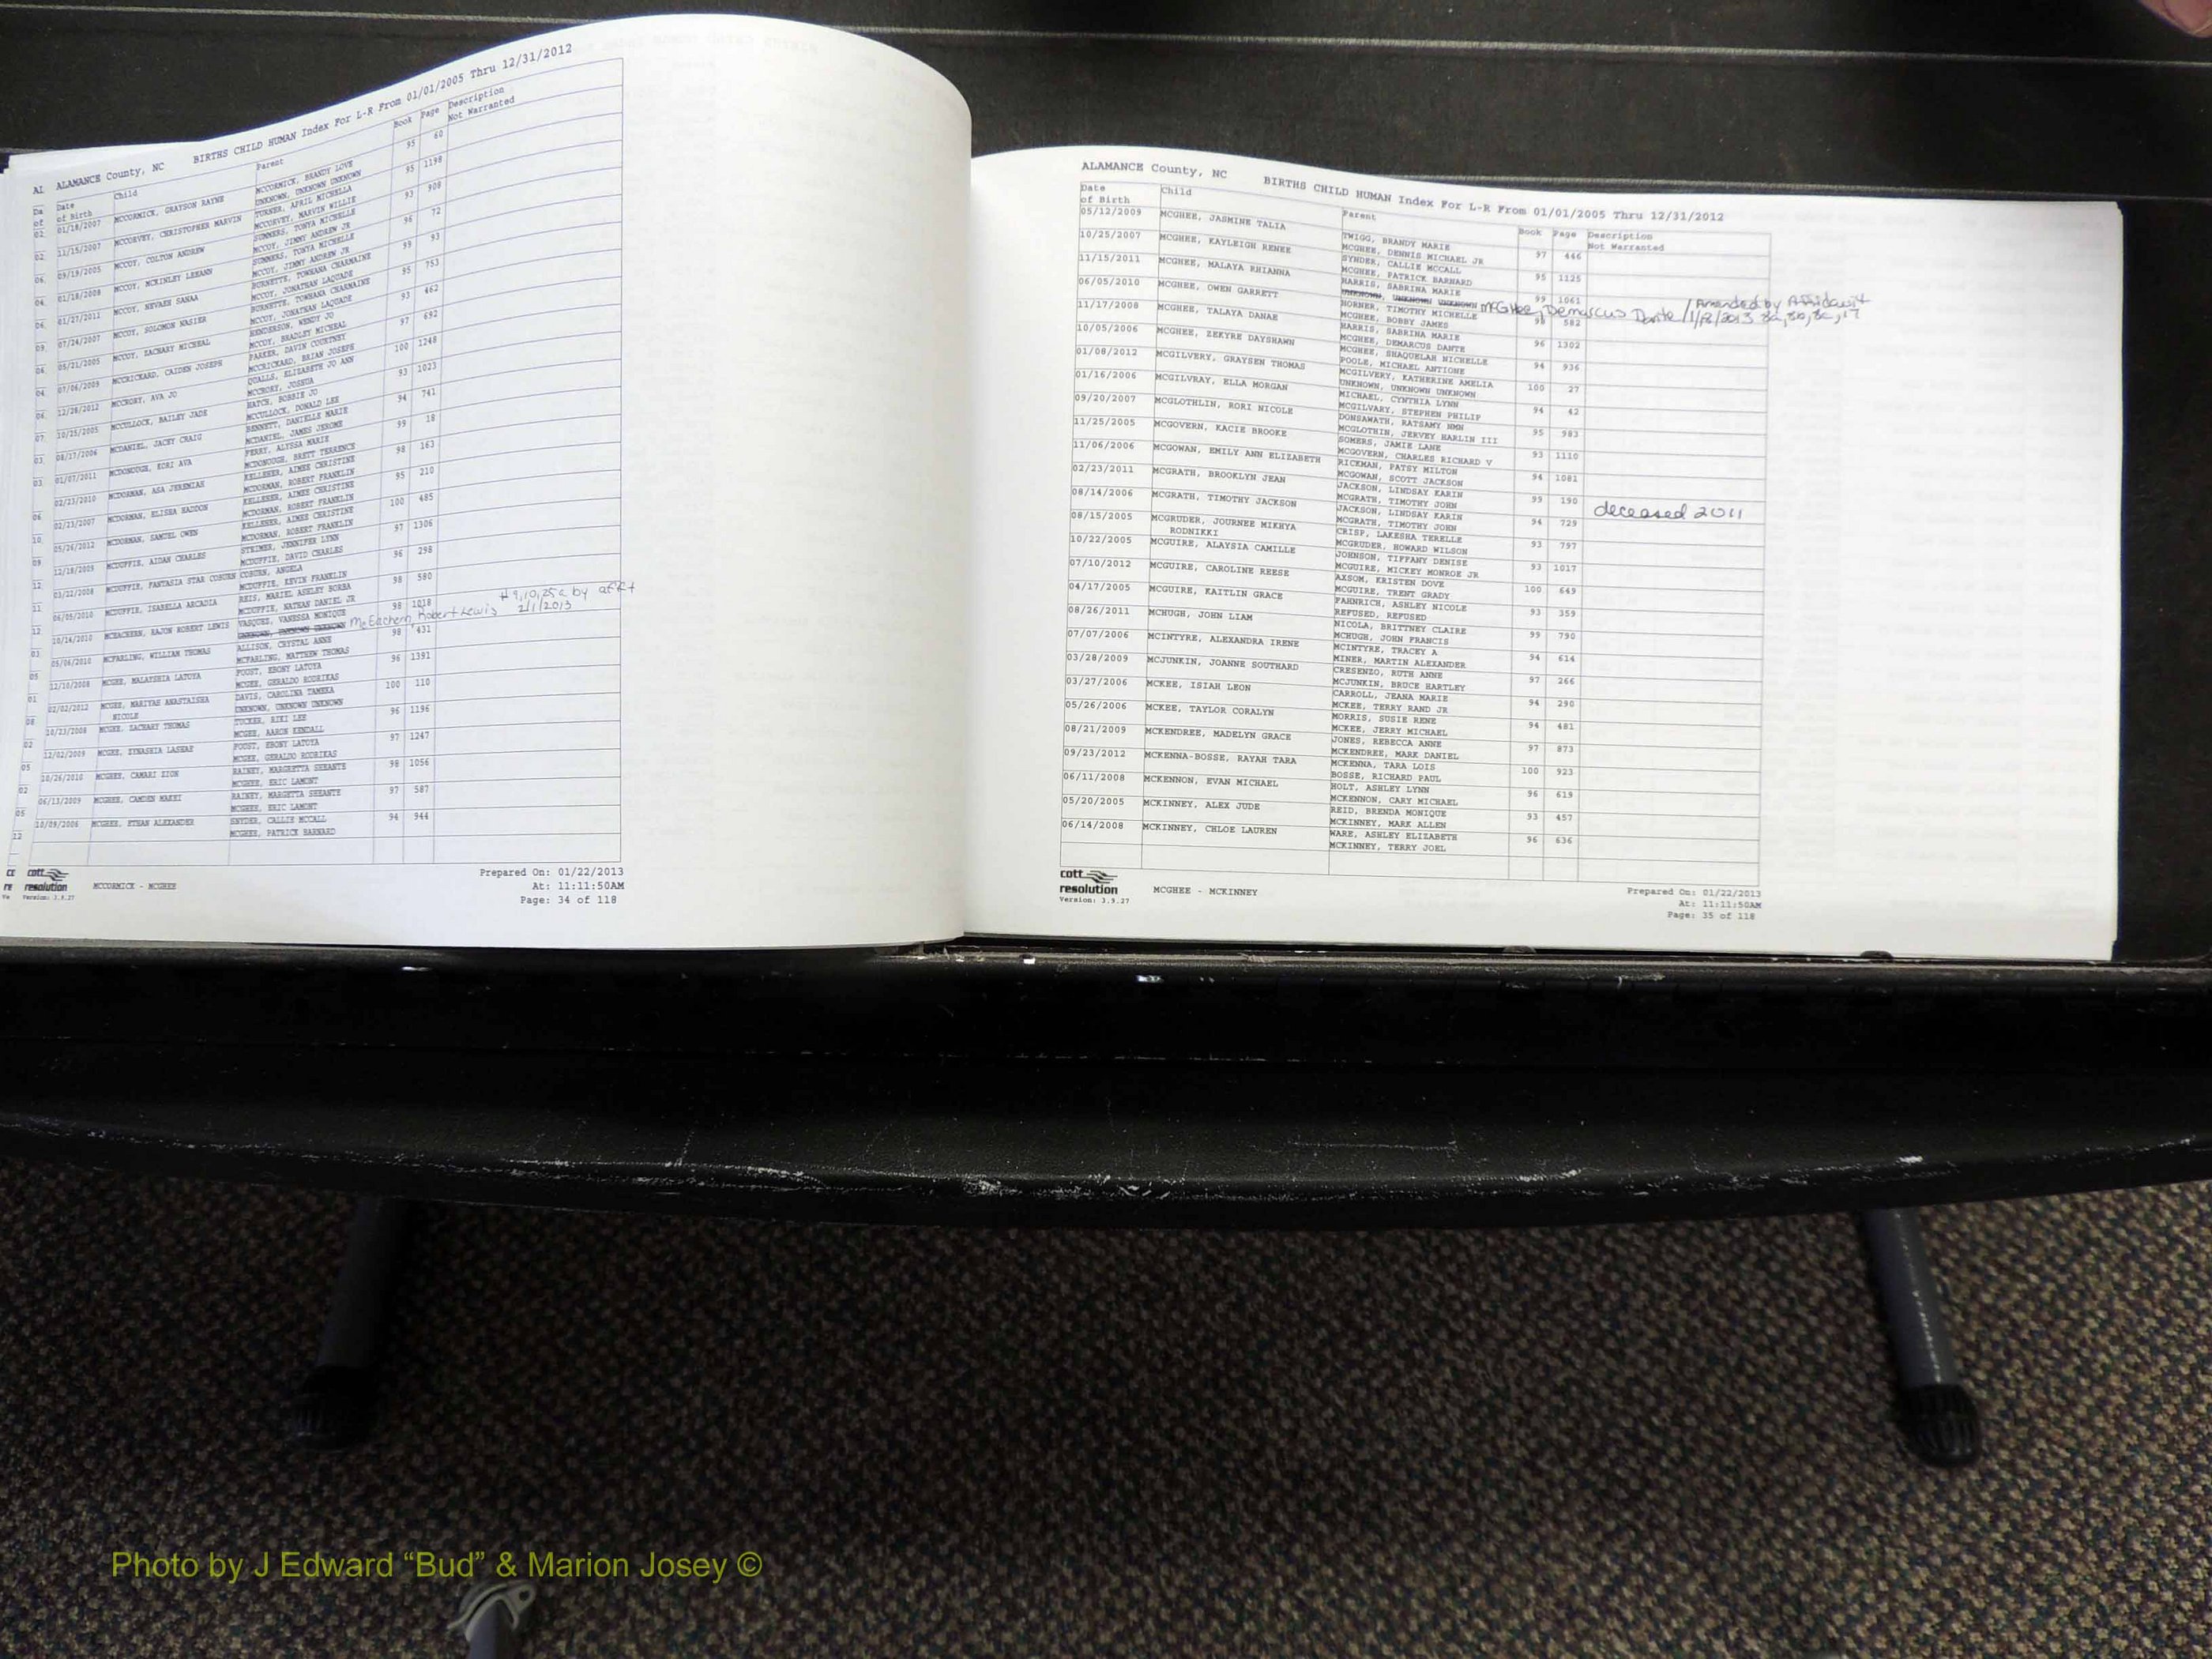 ALAMANCE County, NC BIRTHS CHILD HUMAN Index For L-R From 01/01/2005 Thru 12/31/2012
Date of Birth Child Parent Book Page Description Not Warranted
01/18/2007 MCCORMICK, GRAYSON RAYNE MCCORMICK, BRANDY LOVE 95 60
UNKNOWN, UNKNOWN UNKNOWN
11/15/2007 MCCORVEY, CHRISTOPHER MARVIN TURNER, APRIL MICHELLA 95 1198
MCCORVEY, MARVIN WILLIE
09/19/2005 MCCOY, COLTON ANDREW SUMMERS, TONYA MICHELLE 93 908
MCCOY, JIMMY ANDREW JR
01/18/2008 MCCOY, MCKINLEY LEEANN SUMMERS, TONYA MICHELLE 96 72
MCCOY, JIMMY ANDREW JR
01/27/2011 MCCOY, NEVAEH SANAA BURNETTE, TOWHANA CHARMAINE 99 93
MCCOY, JONATHAN LAQUADE
07/24/2007 MCCOY, SOLOMON NASIER BURNETTE, TOWHANA CHARMAINE 95 753
MCCOY, JONATHAN LAQUADE
05/21/2005 MCCOY, ZACHARY MICHEAL HENDERSON, WENDY JO 93 462
MCCOY, BRADLEY MICHEAL
07/06/2009 MCCRICKARD, CAIDEN JOSEPH PARKER, DAVIN COURTNEY 97 692
MCCRICKARD, BRIAN JOSEPH
12/28/2012 MCCRORY, AVA JO QUALLS, ELIZABETH JO ANN 100 1248
MCCRORY, JOSHUA
10/25/2005 MCCULLOCK, BAILEY JADE HATCH, BOBBIE JO 93 1023
MCCULLOCK, DONALD LEE
08/17/2006 MCDANIEL, JACEY CRAIG BENNETT, DANIELLE MARIE 94 741
MCDANIEL, JAMES JEROME
01/07/2011 MCDONOUGH, KORI AVA PERRY, ALYSSA MARIE 99 18
MCDONOUGH, BRETT TERRENCE
02/23/2010 MCDORMAN, ASA JEREMIAH KELLEHER, AIMEE CHRISTINE 98 163
MCDORMAN, ROBERT FRANKLIN
02/23/2007 MCDORMAN, ELISHA HADDON KELLEHER, AIMEE CHRISTINE 95 210
MCDORMAN, ROBERT FRANKLIN
05/26/2012 MCDORMAN, SAMUEL OWEN KELLEHER, AIMEE CHRISTINE 100 485
MCDORMAN, ROBERT FRANKLIN
12/18/2009 MCDUFFIE, AIDAN CHARLES STEIMER, JENNIFER LYNN 97 1306
MCDUFFIE, DAVID CHARLES
03/22/2008 MCDUFFIE, FANTASIA STAR COBURN COBURN, ANGELA 96 298
MCDUFFIE, KEVIN FRANKLIN
06/05/2010 MCDUFFIE, ISABELLA ARCADIA REIS, MARIEL ASHLEY BORBA 98 580
MCDUFFIE, NATHAN DANIEL JR
10/14/2010 MCEACHERN, RAJON ROBERT LEWIS VASQUEZ, VANESSA MONIQUE 98 1018 #9,10,25a by aff't
UNKNOWN, UNKNOWN UNKNOWN McEachern, Robert Lewis 2/1/2013
05/06/2010 MCFARLING, WILLIAM THOMAS ALLISON, CRYSTAL ANNE 98 431
MCFARLING, MATTHEW THOMAS
12/10/2008 MCGEE, MALAYSHIA LATOYA FOUST, EBONY LATOYA 96 1391
MCGEE, GERALDO RODRIKAS
02/02/2012 MCGEE, MARIYAH ANASTAISHA NICOLE DAVIS, CAROLINA TAMEKA 100 110
UNKNOWN, UNKNOWN UNKNOWN
10/23/2008 MCGEE, ZACHARY THOMAS TUCKER, RIKI LEE 96 1196
MCGEE, AARON KENDALL
12/02/2009 MCGEE, ZYNASHIA LASHAE FOUST, EBONY LATOYA 97 1247
MCGEE, GERALDO RODRIKAS
10/26/2010 MCGHEE, CAMARI ZION RAINEY, MARGRETTA SHEANTE 98 1056
MCGHEE, ERIC LAMONT
06/13/2009 MCGHEE, CAMDEN MARKI RAINEY, MARGETTA SHEANTE 97 587
MCGHEE, ERIC LAMONT
10/09/2006 MCGHEE, ETHAN ALEXANDER SNYDER, CALLIE MCCALL 94 944
MCGHEE, PATRICK BARNARD
cott resolution
Version: 3.9.27
MCCORMICK - MCGHEE
Prepared On: 01/22/2013
At: 11:11:50AM
Page: 34 of 118
ALAMANCE County, NC BIRTHS CHILD HUMAN Index For L-R From 01/01/2005 Thru 12/31/2012
Date of Birth Child Parent Book Page Description Not Warranted
05/12/2009 MCGHEE, JASMINE TALIA TWIGG, BRANDY MARIE 97 446
MCGHEE, DENNIS MICHAEL JR
10/25/2007 MCGHEE, KAYLEIGH RENEE SYNDER, CALLIE MCCALL 95 1125
MCGHEE, PATRICK BARNARD
11/15/2011 MCGHEE, MALAYA RHIANNA HARRIS, SABRINA MARIE 99 1061
UNKNOWN, UNKNOWN UNKNOWN McGHee, Demarcus Dante / Amended by Affidavit 1/18/2013 8a, 8b, 8c, 17
06/05/2010 MCGHEE, OWEN GARRETT HORNER, TIMOTHY MICHELLE 98 582
MCGHEE, BOBBY JAMES
11/17/2008 MCGHEE, TALAYA DANAE HARRIS, SABRINA MARIE 96 1302
MCGHEE, DEMARCUS DANTE
10/05/2006 MCGHEE, ZEKYRE DAYSHAWN MCGHEE, SHAQUELAH NICHELLE 94 936
POOLE, MICHAEL ANTIONE
01/08/2012 MCGILVERY, GRAYSEN THOMAS MCGILVERY, KATHERINE AMELIA 100 27
UNKNOWN, UNKNOWN UNKNOWN
01/16/2006 MCGILVRAY, ELLA MORGAN MICHAEL, CYNTHIA LYNN 94 42
MCGILVARY, STEPHEN PHILIP
09/20/2007 MCGLOTHLIN, RORI NICOLE DONSAWATH, RATSAMY NMN 95 983
MCGLOTHIN, JERVEY HARLIN III
11/25/2005 MCGOVERN, KACIE BROOKE SOMERS, JAMIE LANE 93 1110
MCGOVERN, CHARLES RICHARD V
11/06/2006 MCGOWAN, EMILY ANN ELIZABETH RICKMAN, PATSY MILTON 94 1081
MCGOWAN, SCOTT JACKSON
02/23/2011 MCGRATH, BROOKLYN JEAN JACKSON, LINDSAY KARIN 99 190 deceased 2011
MCGRATH, TIMOTHY JOHN
08/14/2006 MCGRATH, TIMOTHY JACKSON JACKSON, LINDSAY KARIN 94 729
MCGRATH, TIMOTHY JOHN
08/15/2005 MCGRUDER, JOURNEE MIKHYA RODNIKKI CRISP, LAKESHA TERELLE 93 797
MCGRUDER, HOWARD WILSON
10/22/2005 MCGUIRE, ALAYSIA CAMILLE JOHNSON, TIFFANY DENISE 93 1017
MCGUIRE, MICKEY MONROE JR
07/10/2012 MCGUIRE, CAROLINE REESE AXSOM, KRISTEN DOVE 100 649
MCGUIRE, TRENT GRADY
04/17/2005 MCGUIRE, KAITLIN GRACE FAHNRICH, ASHLEY NICOLE 93 359
REFUSED, REFUSED
08/26/2011 MCHUGH, JOHN LIAM NICOLA, BRITTNEY CLAIRE 99 790
MCHUGH, JOHN FRANCIS
07/07/2006 MCINTYRE, ALEXANDRA IRENE MCINTYRE, TRACEY A 94 614
MINER, MARTIN ALEXANDER
03/28/2009 MCJUNKIN, JOANNE SOUTHARD CRESENZO, RUTH ANNE 97 266
MCJUNKIN, BRUCE HARTLEY
03/27/2006 MCKEE, ISIAH LEON CARROLL, JEANA MARIE 94 290
MCKEE, TERRY RAND JR
05/26/2006 MCKEE, TAYLOR CORALYN MORRIS, SUSIE RENE 94 481
MCKEE, JERRY MICHAEL
08/21/2009 MCKENDREE, MADELYN GRACE JONES, REBECCA ANNE 97 873
MCKENDREE, MARK DANIEL
09/23/2012 MCKENNA-BOSSE, RAYAH TARA MCKENNA, TARA LOIS 100 923
BOSSE, RICHARD PAUL
06/11/2008 MCKENNON, EVAN MICHAEL HOLT, ASHLEY LYNN 96 619
MCKENNON, CARY MICHAEL
05/20/2005 MCKINNEY, ALEX JUDE REID, BRENDA MONIQUE 93 457
MCKINNEY, MARK ALLEN
06/14/2008 MCKINNEY, CHLOE LAUREN WARE, ASHLEY ELIZABETH 96 636
MCKINNEY, TERRY JOEL
cott resolution
Version: 3.9.27
MCGHEE - MCKINNEY
Prepared On: 01/22/2013
At: 11:11:50AM
Page: 35 of 118
Photo by J Edward “Bud” & Marion Josey ©